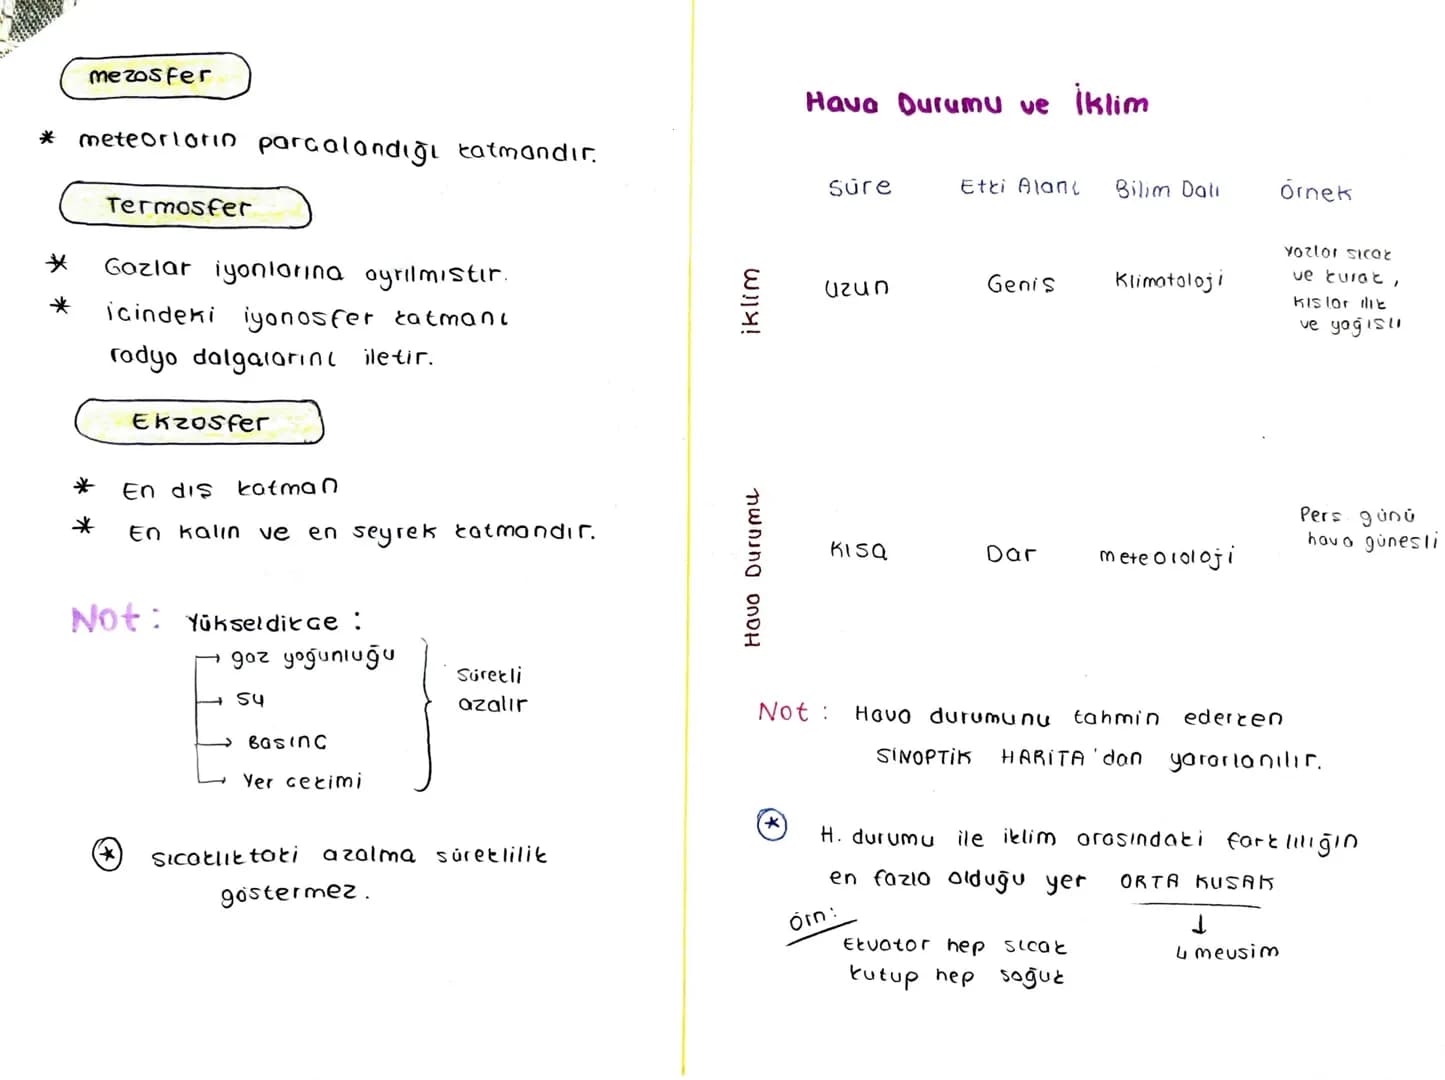 mezosfer
* meteorların parcalandığı katmandır.
Termosfer
* Gazlar iyonlarına ayrılmıstır.
* icindeki iyonosfer katmanı
radyo dalgalarını iletir.
Ekzosfer
* En dış katman
* En kalın ve en seyrek katmandır.
Not: Yükseldikce :
→ gaz yoğunluğu
→ Su
→ Basınc
→ Yer cekimi
Sürekli
azalır
* Sıcaklıktaki azalma süreklilik
göstermez.
Hava Durumu ve İklim
Süre Etki Alanı Bilim Dalı Örnek
iklim Uzun Genis Klimatoloji
Yazlar sıcak
ve kurak,
kıslar ılık
ve yağıslı
Hava Durumu Kısa Dar meteoroloji
Pers. günü
hava günesli
Not: Hava durumunu tahmin ederken
SİNOPTİK HARİTA'dan yararlanılır.
* H. durumu ile iklim arasındaki farklılığın
en fazla olduğu yer ORTA KUSAK
↓
4 mevsim
Örn:
Ekvator hep sıcak
kutup hep soğuk